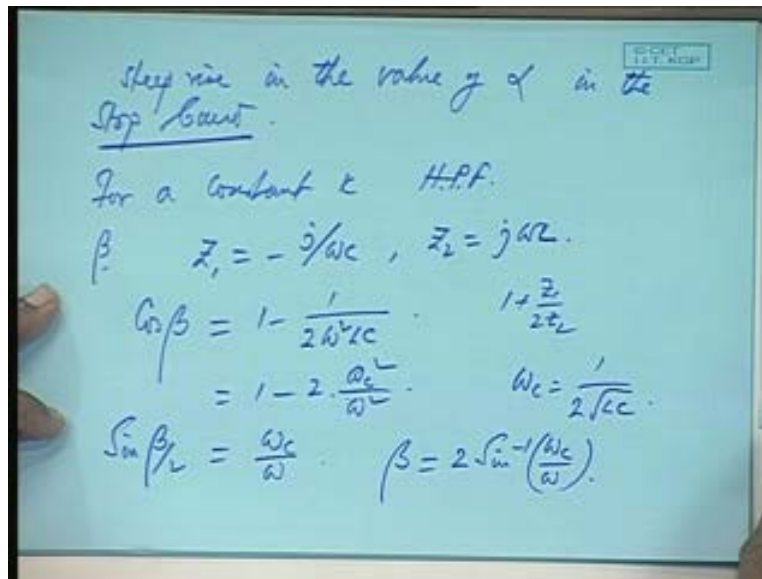 © CET
I.I.T. KGP
steep rise in the value of α in the
Stop band.
For a constant k H.P.F.
β Z₁ = - j/ωC , Z₂ = jωL.
Cos β = 1 - 1/(2ω²LC) . 1 + Z₁/(2Z₂)
= 1 - 2 · ω_c²/ω² . ω_c = 1/(2√LC) .
Sin β/2 = ω_c/ω . β = 2 Sin⁻¹(ω_c/ω).